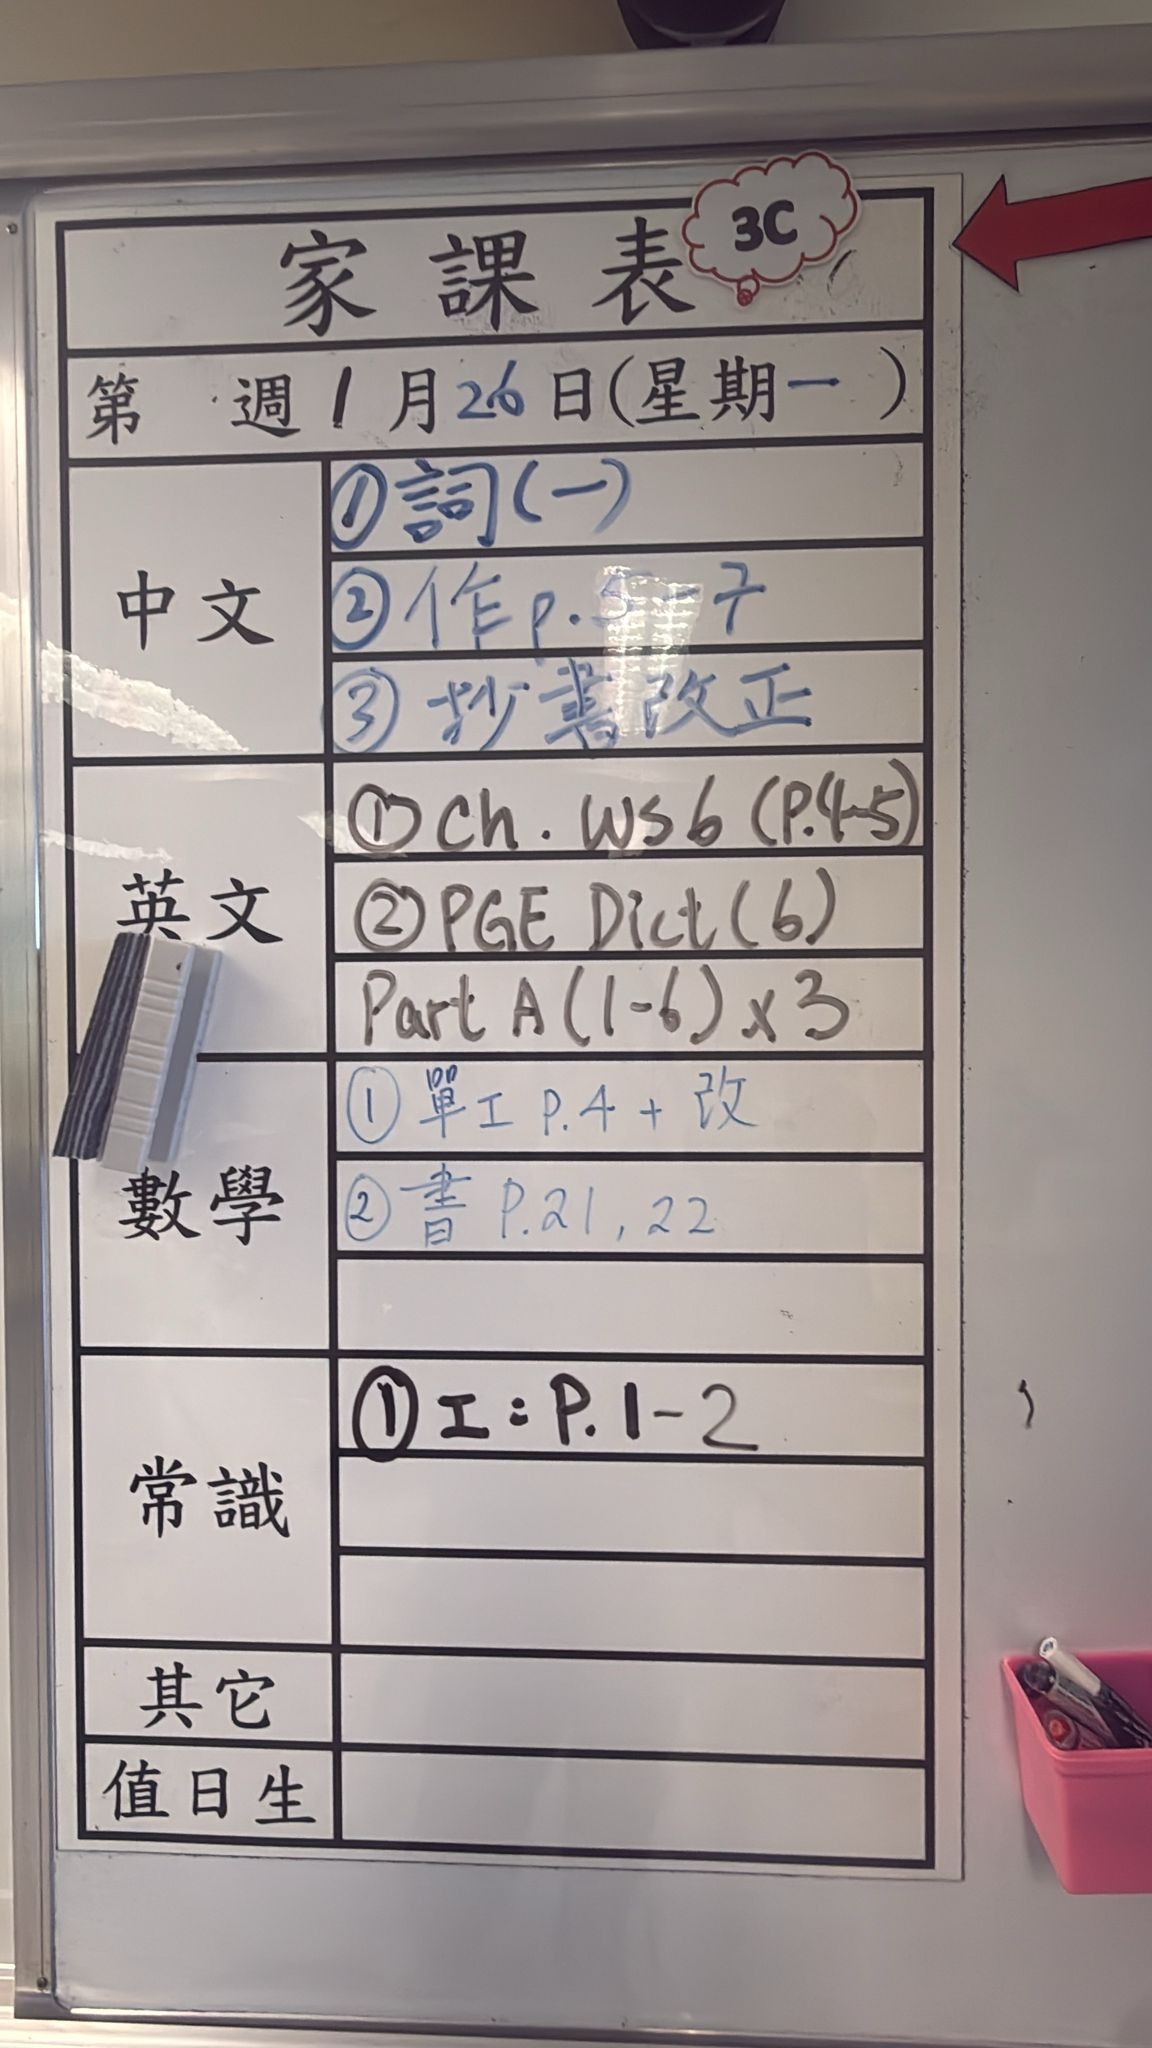 家課表 3C
第 週 1月26日(星期一)
中文
①詞(一)
②作p.5-7
③抄書改正
英文
①Ch. WS6 (P.4-5)
②PGE Dict(6)
Part A(1-6)x3
數學
①單工P.4+改
②書P.21,22
常識
①工:P.1-2
其它
值日生